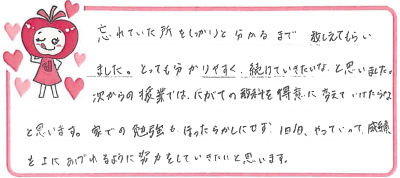 忘れていた所をしっかりと分かるまで 教しえてもらい
ました。とっても分かりやすく、続けていきたいな、と思いました。
次からの授業では、にがての教科を得意に変えていけたらな
と思います。家での勉強も、ほったらかしにせず、1日1日、やっていって、成績
を上にあげれるように努力をしていきたいと思います。